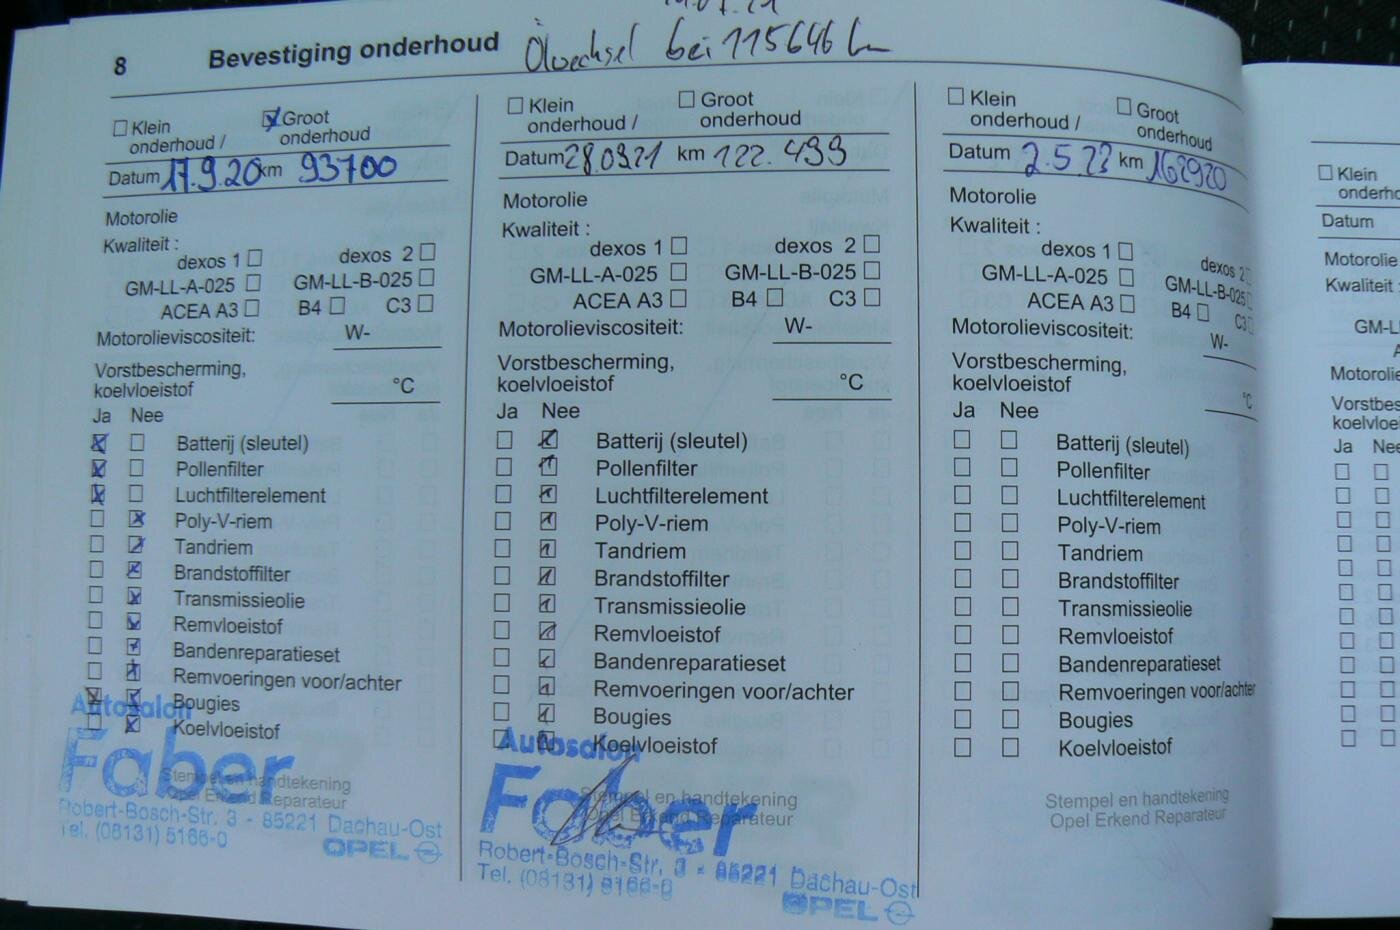 8 Bevestiging onderhoud Ölwechsel bei 115646 km
Klein onderhoud /
Groot onderhoud
Datum 17.9.20 km 93700
Motorolie
Kwaliteit :
dexos 1 dexos 2
GM-LL-A-025 GM-LL-B-025
ACEA A3 B4 C3
Motorolieviscositeit: W-
Vorstbescherming,
koelvloeistof °C
Ja Nee
Batterij (sleutel)
Pollenfilter
Luchtfilterelement
Poly-V-riem
Tandriem
Brandstoffilter
Transmissieolie
Remvloeistof
Bandenreparatieset
Remvoeringen voor/achter
Bougies
Koelvloeistof
Autosalon
Faber
Stempel en handtekening
Opel Erkend Reparateur
Robert-Bosch-Str. 3 - 85221 Dachau-Ost
Tel. (08131) 5166-0
OPEL
Klein onderhoud /
Groot onderhoud
Datum 28.09.21 km 122.499
Motorolie
Kwaliteit :
dexos 1 dexos 2
GM-LL-A-025 GM-LL-B-025
ACEA A3 B4 C3
Motorolieviscositeit: W-
Vorstbescherming,
koelvloeistof °C
Ja Nee
Batterij (sleutel)
Pollenfilter
Luchtfilterelement
Poly-V-riem
Tandriem
Brandstoffilter
Transmissieolie
Remvloeistof
Bandenreparatieset
Remvoeringen voor/achter
Bougies
Koelvloeistof
Autosalon
Faber
Stempel en handtekening
Opel Erkend Reparateur
Robert-Bosch-Str. 3 - 85221 Dachau-Ost
Tel. (08131) 5166-0
OPEL
Klein onderhoud /
Groot onderhoud
Datum 2.5.23 km 162920
Motorolie
Kwaliteit :
dexos 1 dexos 2
GM-LL-A-025 GM-LL-B-025
ACEA A3 B4 C3
Motorolieviscositeit: W-
Vorstbescherming,
koelvloeistof °C
Ja Nee
Batterij (sleutel)
Pollenfilter
Luchtfilterelement
Poly-V-riem
Tandriem
Brandstoffilter
Transmissieolie
Remvloeistof
Bandenreparatieset
Remvoeringen voor/achter
Bougies
Koelvloeistof
Stempel en handtekening
Opel Erkend Reparateur
Klein
onderho
Datum
Motorolie
Kwaliteit :
GM-L
Motorolie
Vorstbes
koelvloe
Ja Nee